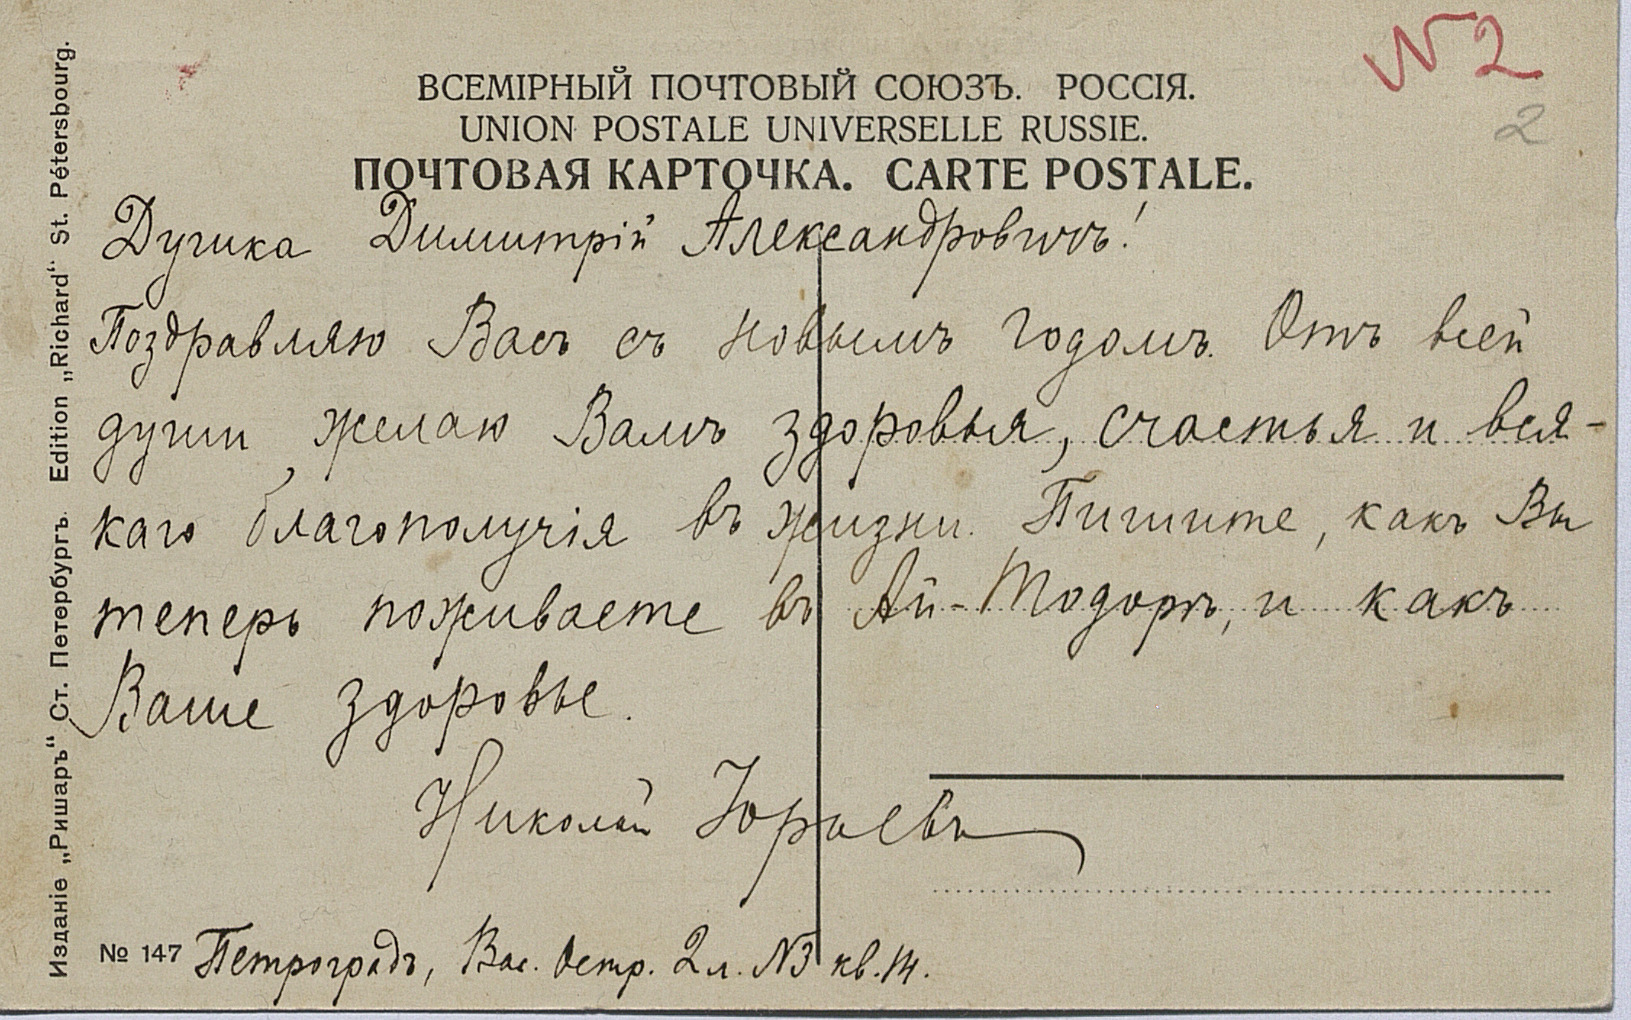 N 2
2
ВСЕМІРНЫЙ ПОЧТОВЫЙ СОЮЗЪ. РОССІЯ.
UNION POSTALE UNIVERSELLE RUSSIE.
ПОЧТОВАЯ КАРТОЧКА. CARTE POSTALE.
Душка Димитрій Александровичъ!
Поздравляю Васъ съ новымъ годомъ. Отъ всей
души желаю Вамъ здоровья, счастья и вся-
каго благополучія въ жизни. Пишите, какъ Вы
теперь поживаете въ Ай-Тодоръ, и какъ
Ваше здоровье.
Николай Юрьевъ
№ 147 Петроградъ, Вас. Остр. 2 л. N3 кв. 14.
Изданіе „Ришаръ“ Ст. Петербургъ. Edition „Richard“ St. Pétersbourg.